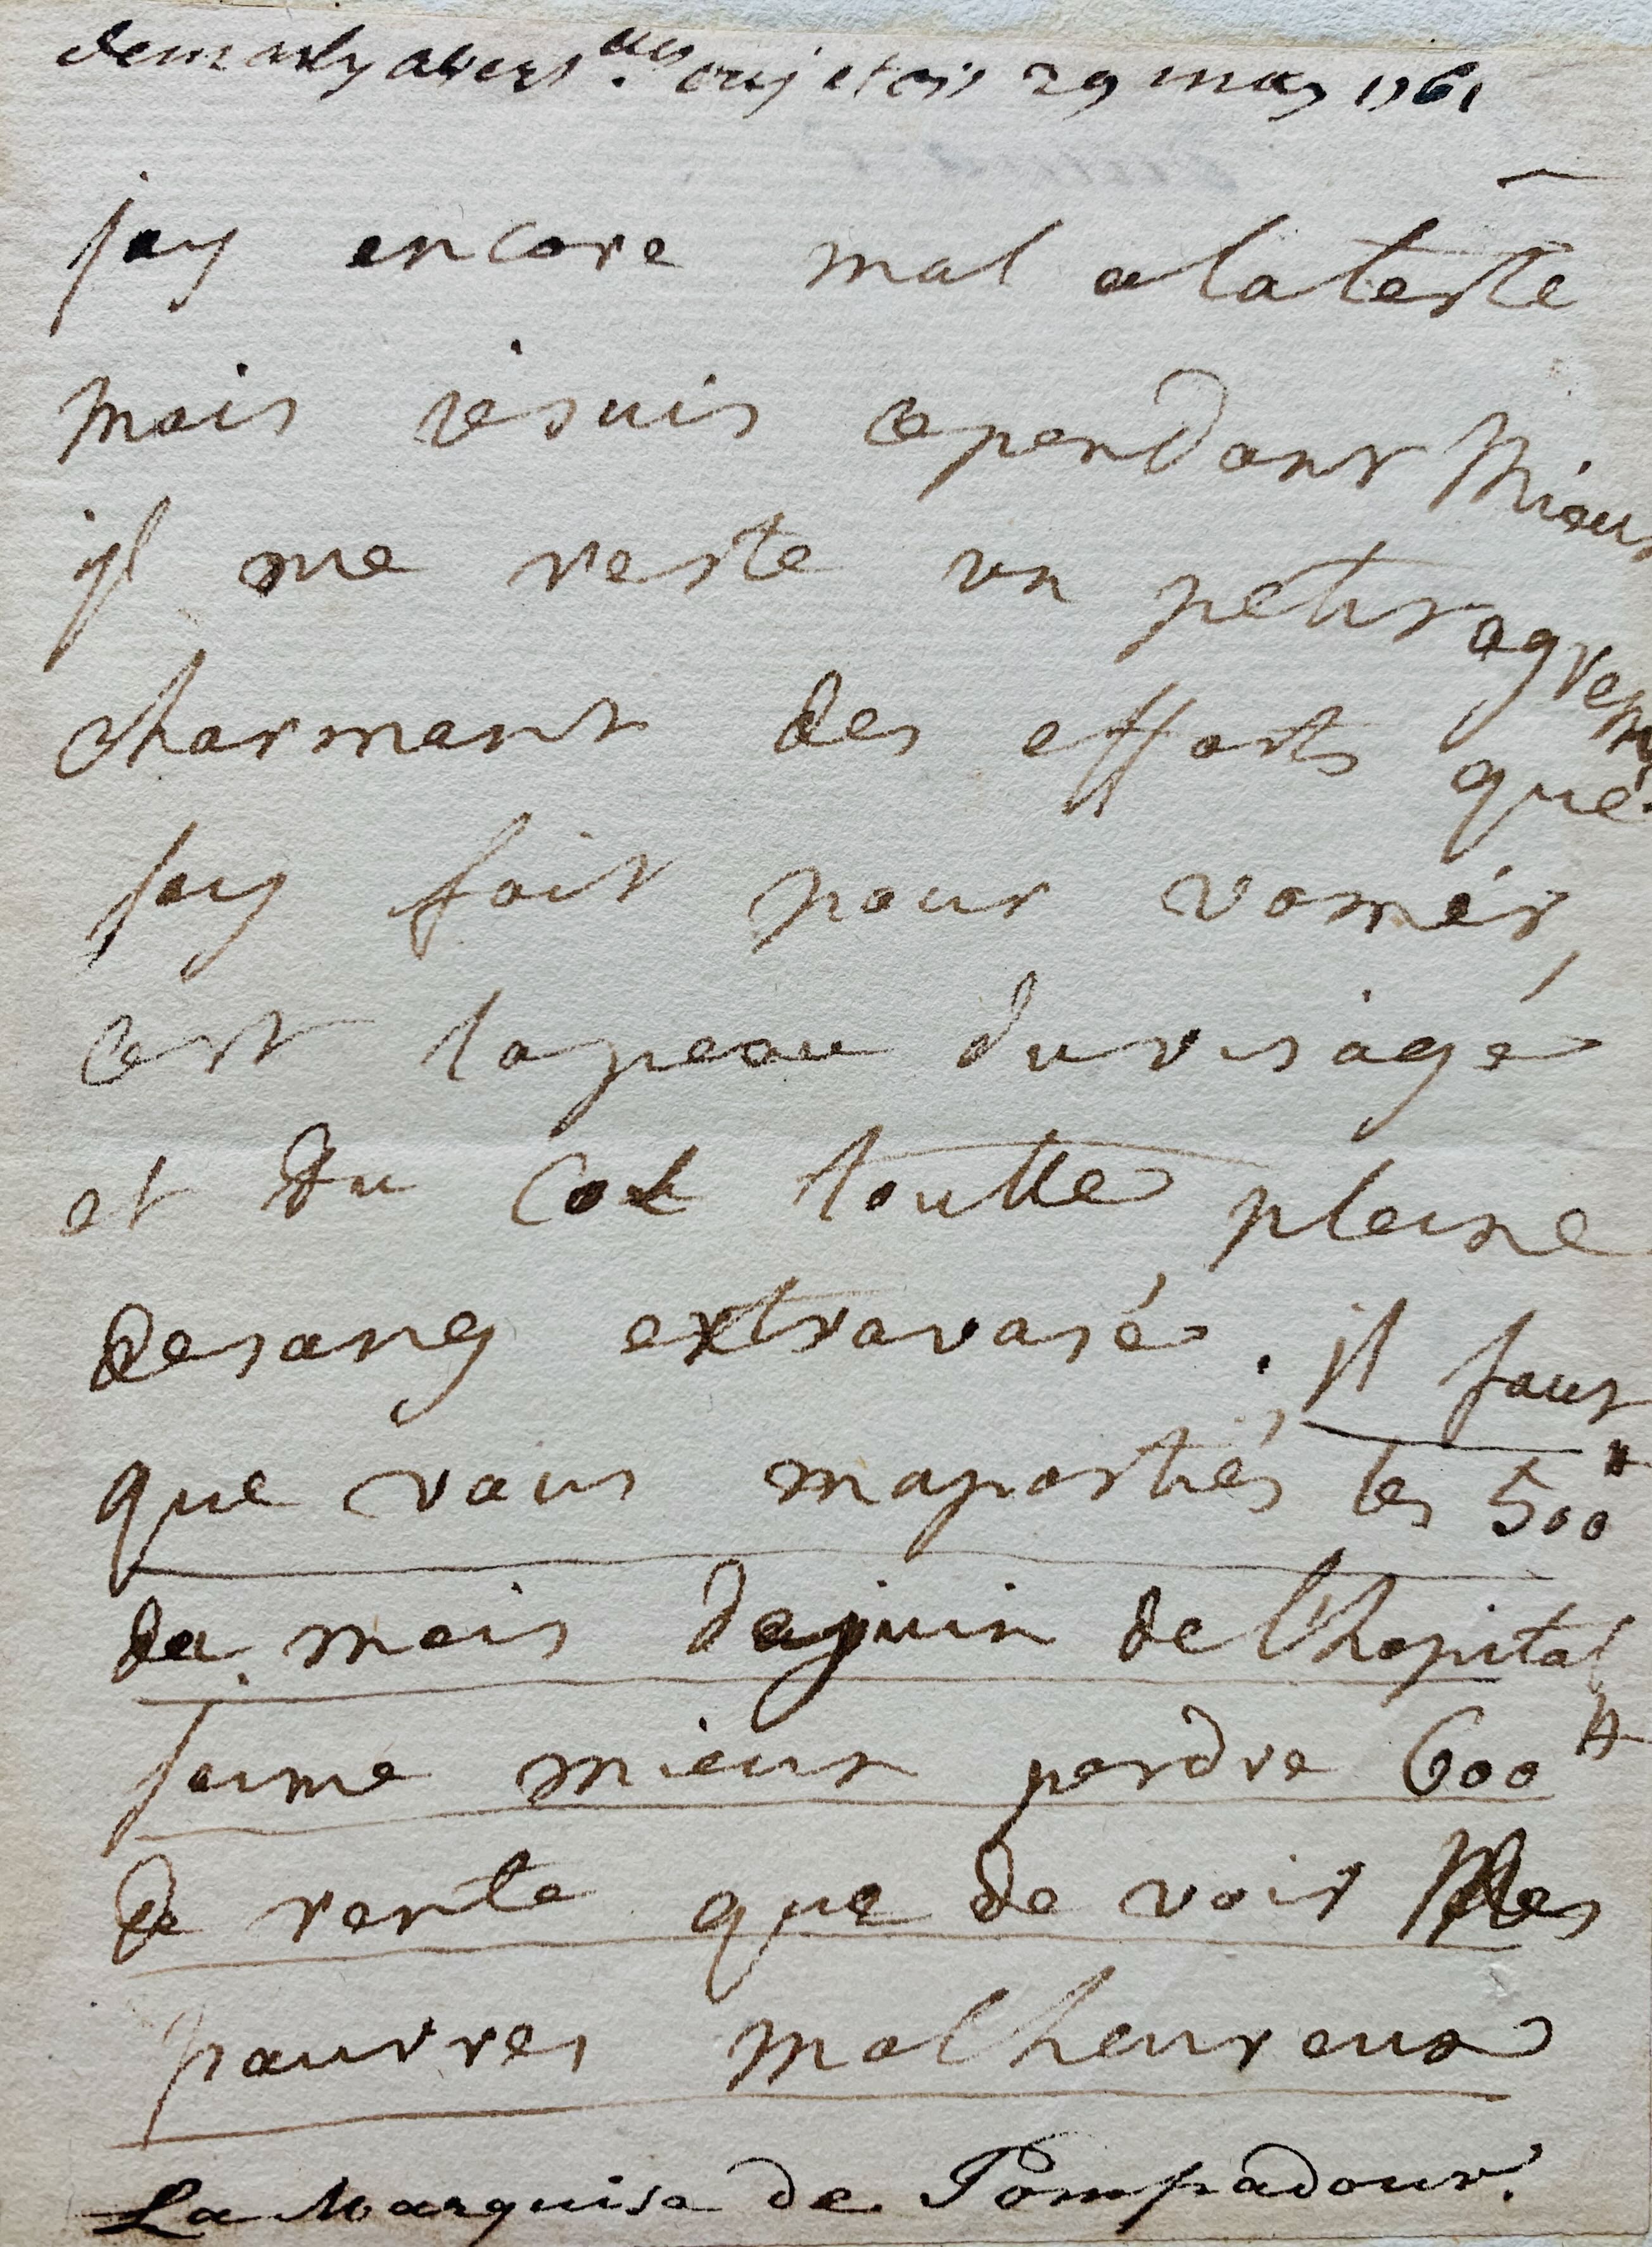 de marly a vers.lles ou j etois 29 may 1761
jay encore mal a la teste
mais je suis cependant mieux
jl me reste un petit agrement
charmant des efforts que
jay fait pour vomir,
cest la peau du visage
et du col toutte pleine
de sang extravasé. jl faut
que vous maportiés les 500#
du mois de juin de l'hopital
jaime mieux perdre 600#
de rente que de voir des
pauvres malheureux
La Marquise de Pompadour.